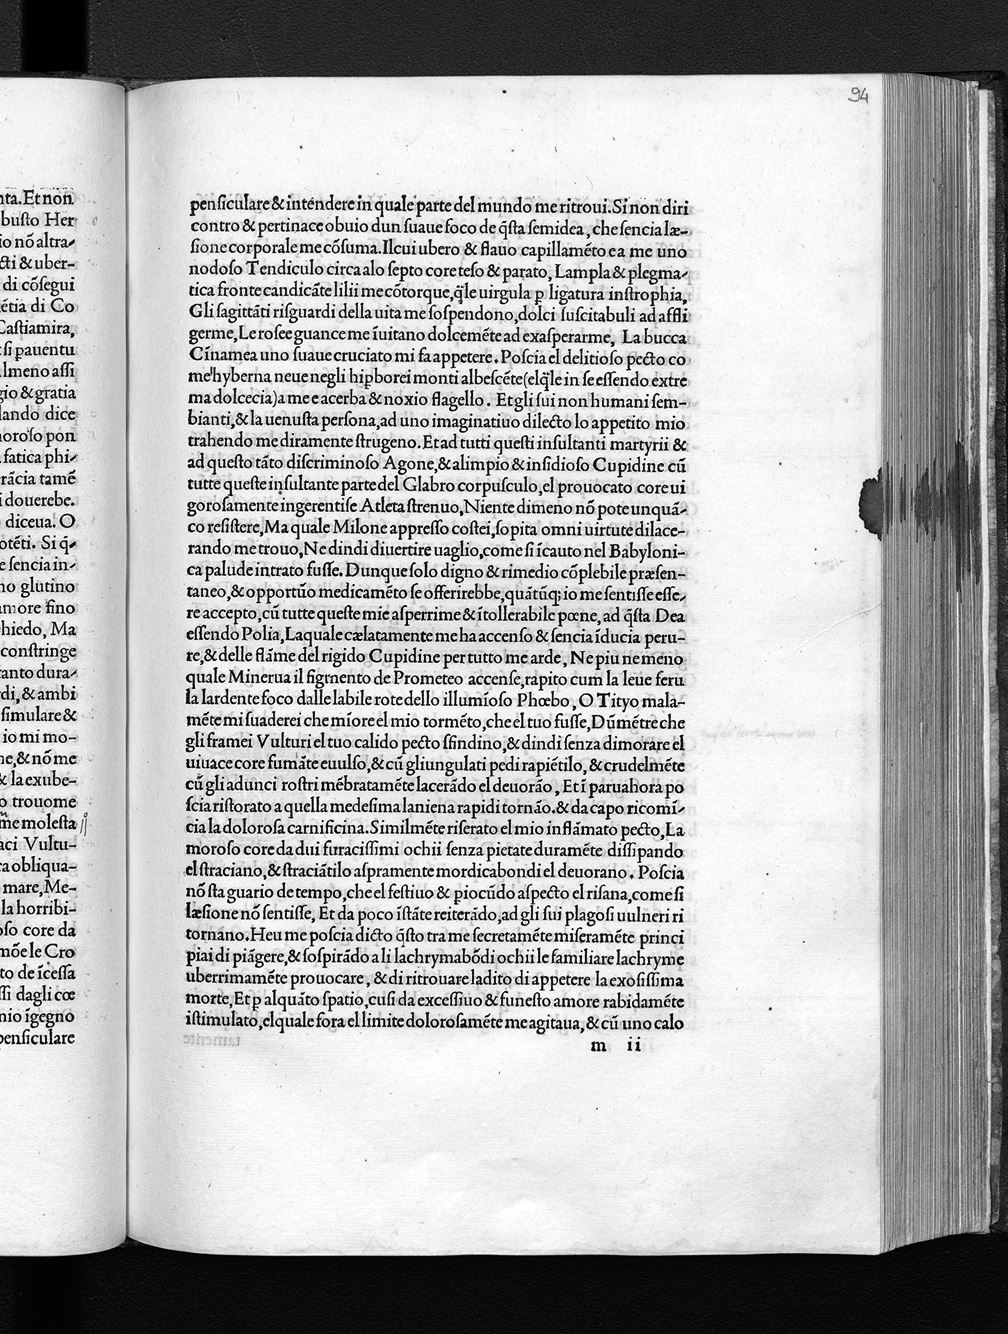 nta. Et non
busto Her
io nõ altra-
cti & uber-
di cõsegui
ẽtia di Co
Castiamira,
si pauentu
lmeno assi
gio & gratia
lando dice
moroso pon
fatica phi-
rãcia tamẽ
i douerebe.
diceua. O
otẽti. Si q̃-
e sencia in-
no glutino
amore fino
hiedo, Ma
constringe
tanto dura-
rdi, & ambi
simulare &
io mi mo-
ne, & nõ me
& la exube-
o trouome
me molesta
aci Vultu-
ra obliqua-
mare, Me-
la horribi-
oso core da
mõe le Cro
to de ĩcessa
ssi dagli cœ
nio ĩgegno
pensiculare
94
pensiculare & intendere in quale parte del mundo me ritroui. Si non diri
contro & pertinace obuio dun suaue foco de q̃sta semidea, che sencia læ-
sione corporale me cõsuma. Il cui ubero & flauo capillamẽto ea me uno
nodoso Tendiculo circa alo septo core teso & parato, Lampla & plegma-
tica fronte candicãte lilii me cõtorque, q̃le uirgula ꝑ ligatura instrophia,
Gli sagittãti risguardi della uita me sospendono, dolci suscitabuli ad affli
germe, Le rosee guance me ĩuitano dolcemẽte ad exasperarme, La bucca
Cĩnamea uno suaue cruciato mi fa appetere. Poscia el delitioso pecto co
me hyberna neue negli hiꝑborei monti albescẽte (el q̃le in se essendo extre
ma dolcecia) a me e acerba & noxio flagello. Et gli sui non humani sem-
bianti, & la uenusta persona, ad uno imaginatiuo dilecto lo appetito mio
trahendo me diramente strugeno. Et ad tutti questi insultanti martyrii &
ad questo tãto discriminoso Agone, & alimpio & insidioso Cupidine cũ
tutte queste insultante parte del Glabro corpusculo, el prouocato core ui
gorosamente ingerentise Atleta strenuo, Niente dimeno nõ pote unquã-
co resistere, Ma quale Milone appresso costei, sopita omni uirtute dilace-
rando me trouo, Ne dindi diuertire uaglio, come si ĩcauto nel Babyloni-
ca palude intrato fusse. Dunque solo digno & rimedio cõplebile præsen-
taneo, & opportũo medicamẽto se offerirebbe, quãtũq; io me sentisse esse-
re accepto, cũ tutte queste mie asperrime & ĩtollerabile pœne, ad q̃sta Dea
essendo Polia, Laquale cælatamente me ha accenso & sencia ĩducia peru-
re, & delle flãme del rigido Cupidine per tutto me arde, Ne piu ne meno
quale Minerua il figmento de Prometeo accense, rapito cum la leue feru
la lardente foco dalle labile rote dello illumĩoso Phœbo, O Tityo mala-
mẽte mi suaderei che mĩore el mio tormẽto, che el tuo fusse, Dũ mẽtre che
gli framei Vulturi el tuo calido pecto sfindino, & dindi senza dimorare el
uiuace core fumãte euulso, & cũ gli ungulati pedi rapiẽtilo, & crudelmẽte
cũ gli adunci rostri mẽbratamẽte lacerãdo el deuorão, Et ĩ paruahora po
scia ristorato a quella medesima laniena rapidi tornão. & da capo ricomĩ-
cia la dolorosa carnificina. Similmẽte riserato el mio inflãmato pecto, La
moroso core da dui furacissimi ochii senza pietate duramẽte dissipando
el straciano, & straciãtilo aspramente mordicabondi el deuorano. Poscia
nõ sta guario de tempo, che el festiuo & piocũdo aspecto el risana, come si
læsione nõ sentisse, Et da poco ĩstãte reiterãdo, ad gli sui plagosi uulneri ri
tornano. Heu me poscia dicto q̃sto tra me secretamẽte miseramẽte princi
piai di piãgere, & sospirãdo a li lachrymabõdi ochii le familiare lachryme
uberrimamẽte prouocare, & di ritrouare ladito di appetere la exosissima
morte, Et ꝑ alquãto spatio, cusi da excessiuo & funesto amore rabidamẽte
ĩstimulato, elquale fora el limite dolorosamẽte me agitaua, & cũ uno calo
m ii